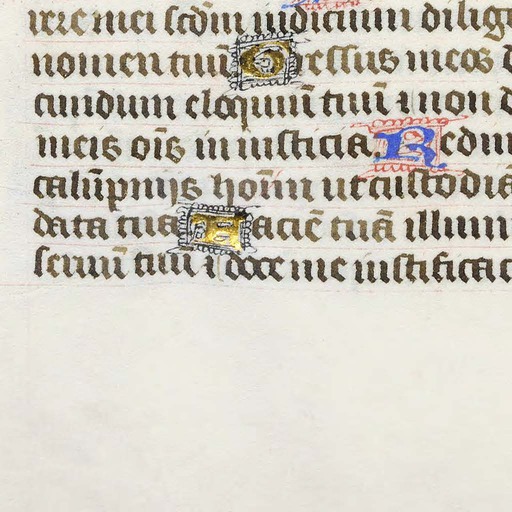 rere mei scd̄m iudicium dilig
nomen tuū Gressus meos d
cundum eloquiū tuū ⁊ non d
meis oīs in iusticia Redim
calūpniis hoīm ut custodia
data tua Faciē tuā illumi
seruū tuū ⁊ doce me iustificac